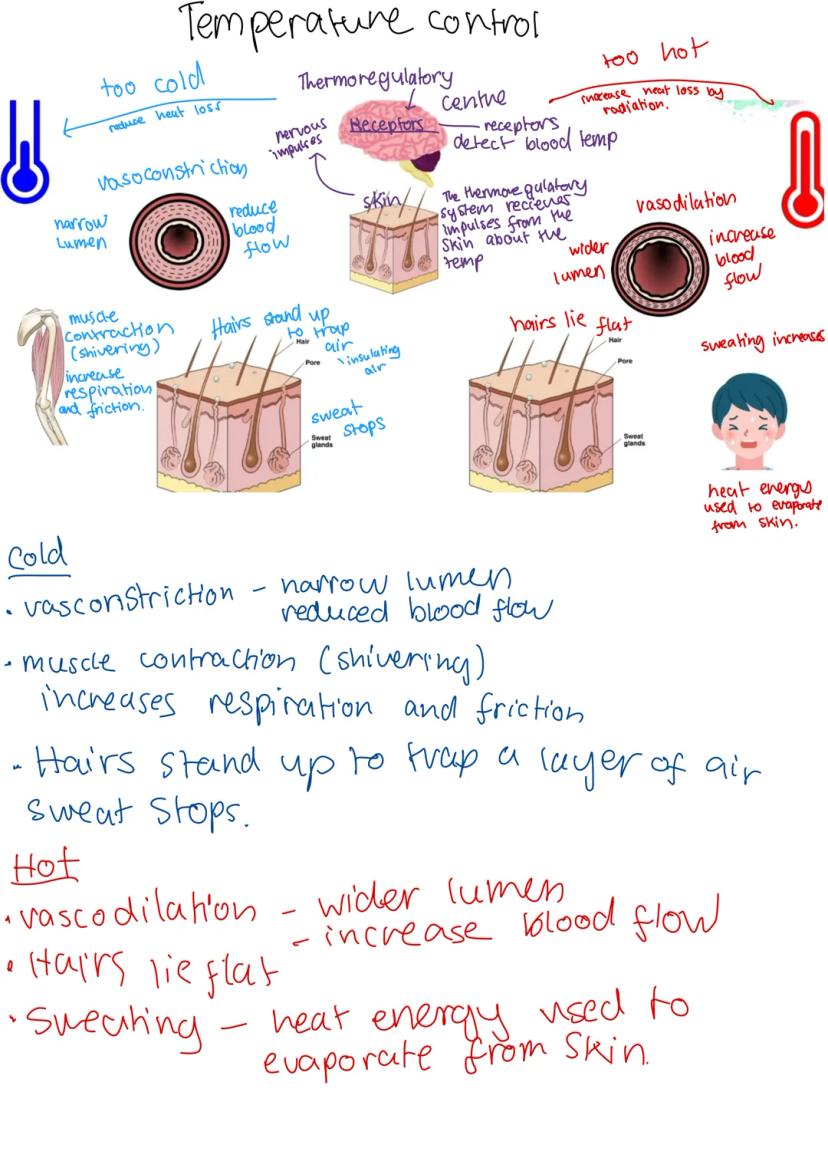 Temperature control
too cold
reduce heat loss
Thermoregulatory
centre
Receptors
receptors
detect blood temp
nervous
impulses
too hot
increase heat loss by
radiation.
vasoconstriction
narrow
lumen
reduce
blood
flow
skin
The thermoregulatory
system recieves
impulses from the
skin about the
temp
vasodilation
wider
lumen
increase
blood
flow
muscle
contraction
(shivering)
increase
respiration
and friction.
Hairs stand up
to trap
air
insulating
air
Hair
Pore
sweat
stops
Sweat
glands
hairs lie flat
Hair
Pore
Sweat
glands
sweating increases
heat energy
used to evaporate
from skin.
Cold
• vasconstriction – narrow lumen
reduced blood flow
• muscle contraction (shivering)
increases respiration and friction
• Hairs stand up to trap a layer of air
sweat stops.
Hot
• vascodilation – wider lumen
– increase blood flow
• Hairs lie flat
• Sweating – heat energy used to
evaporate from skin.